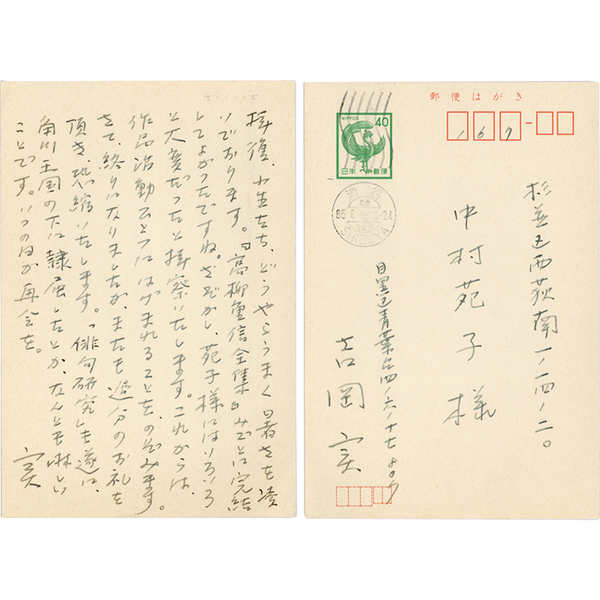 拝復、小生たち、どうやらうまく暑さを凌
いでおります。『高柳重信全集』みごとに完結
してよかったですね。さぞかし、苑子様にはいろいろ
と大変だったと拝察いたします。これからは、
作品活動に はげまれることをのぞみます。
さて、終りになりましたが、またも過分のお礼を
頂き、恐縮いたします。「俳句研究」も遂に、
角川王国の下に隷属したとか、なんとも淋しい
ことです。いつの日か再会を。
実
郵便はがき
167
NIPPON 40
日本郵便
杉並区西荻南一ノ一四ノ二〇
中村苑子様
目黒区青葉台四ノ六ノ十七
吉岡実